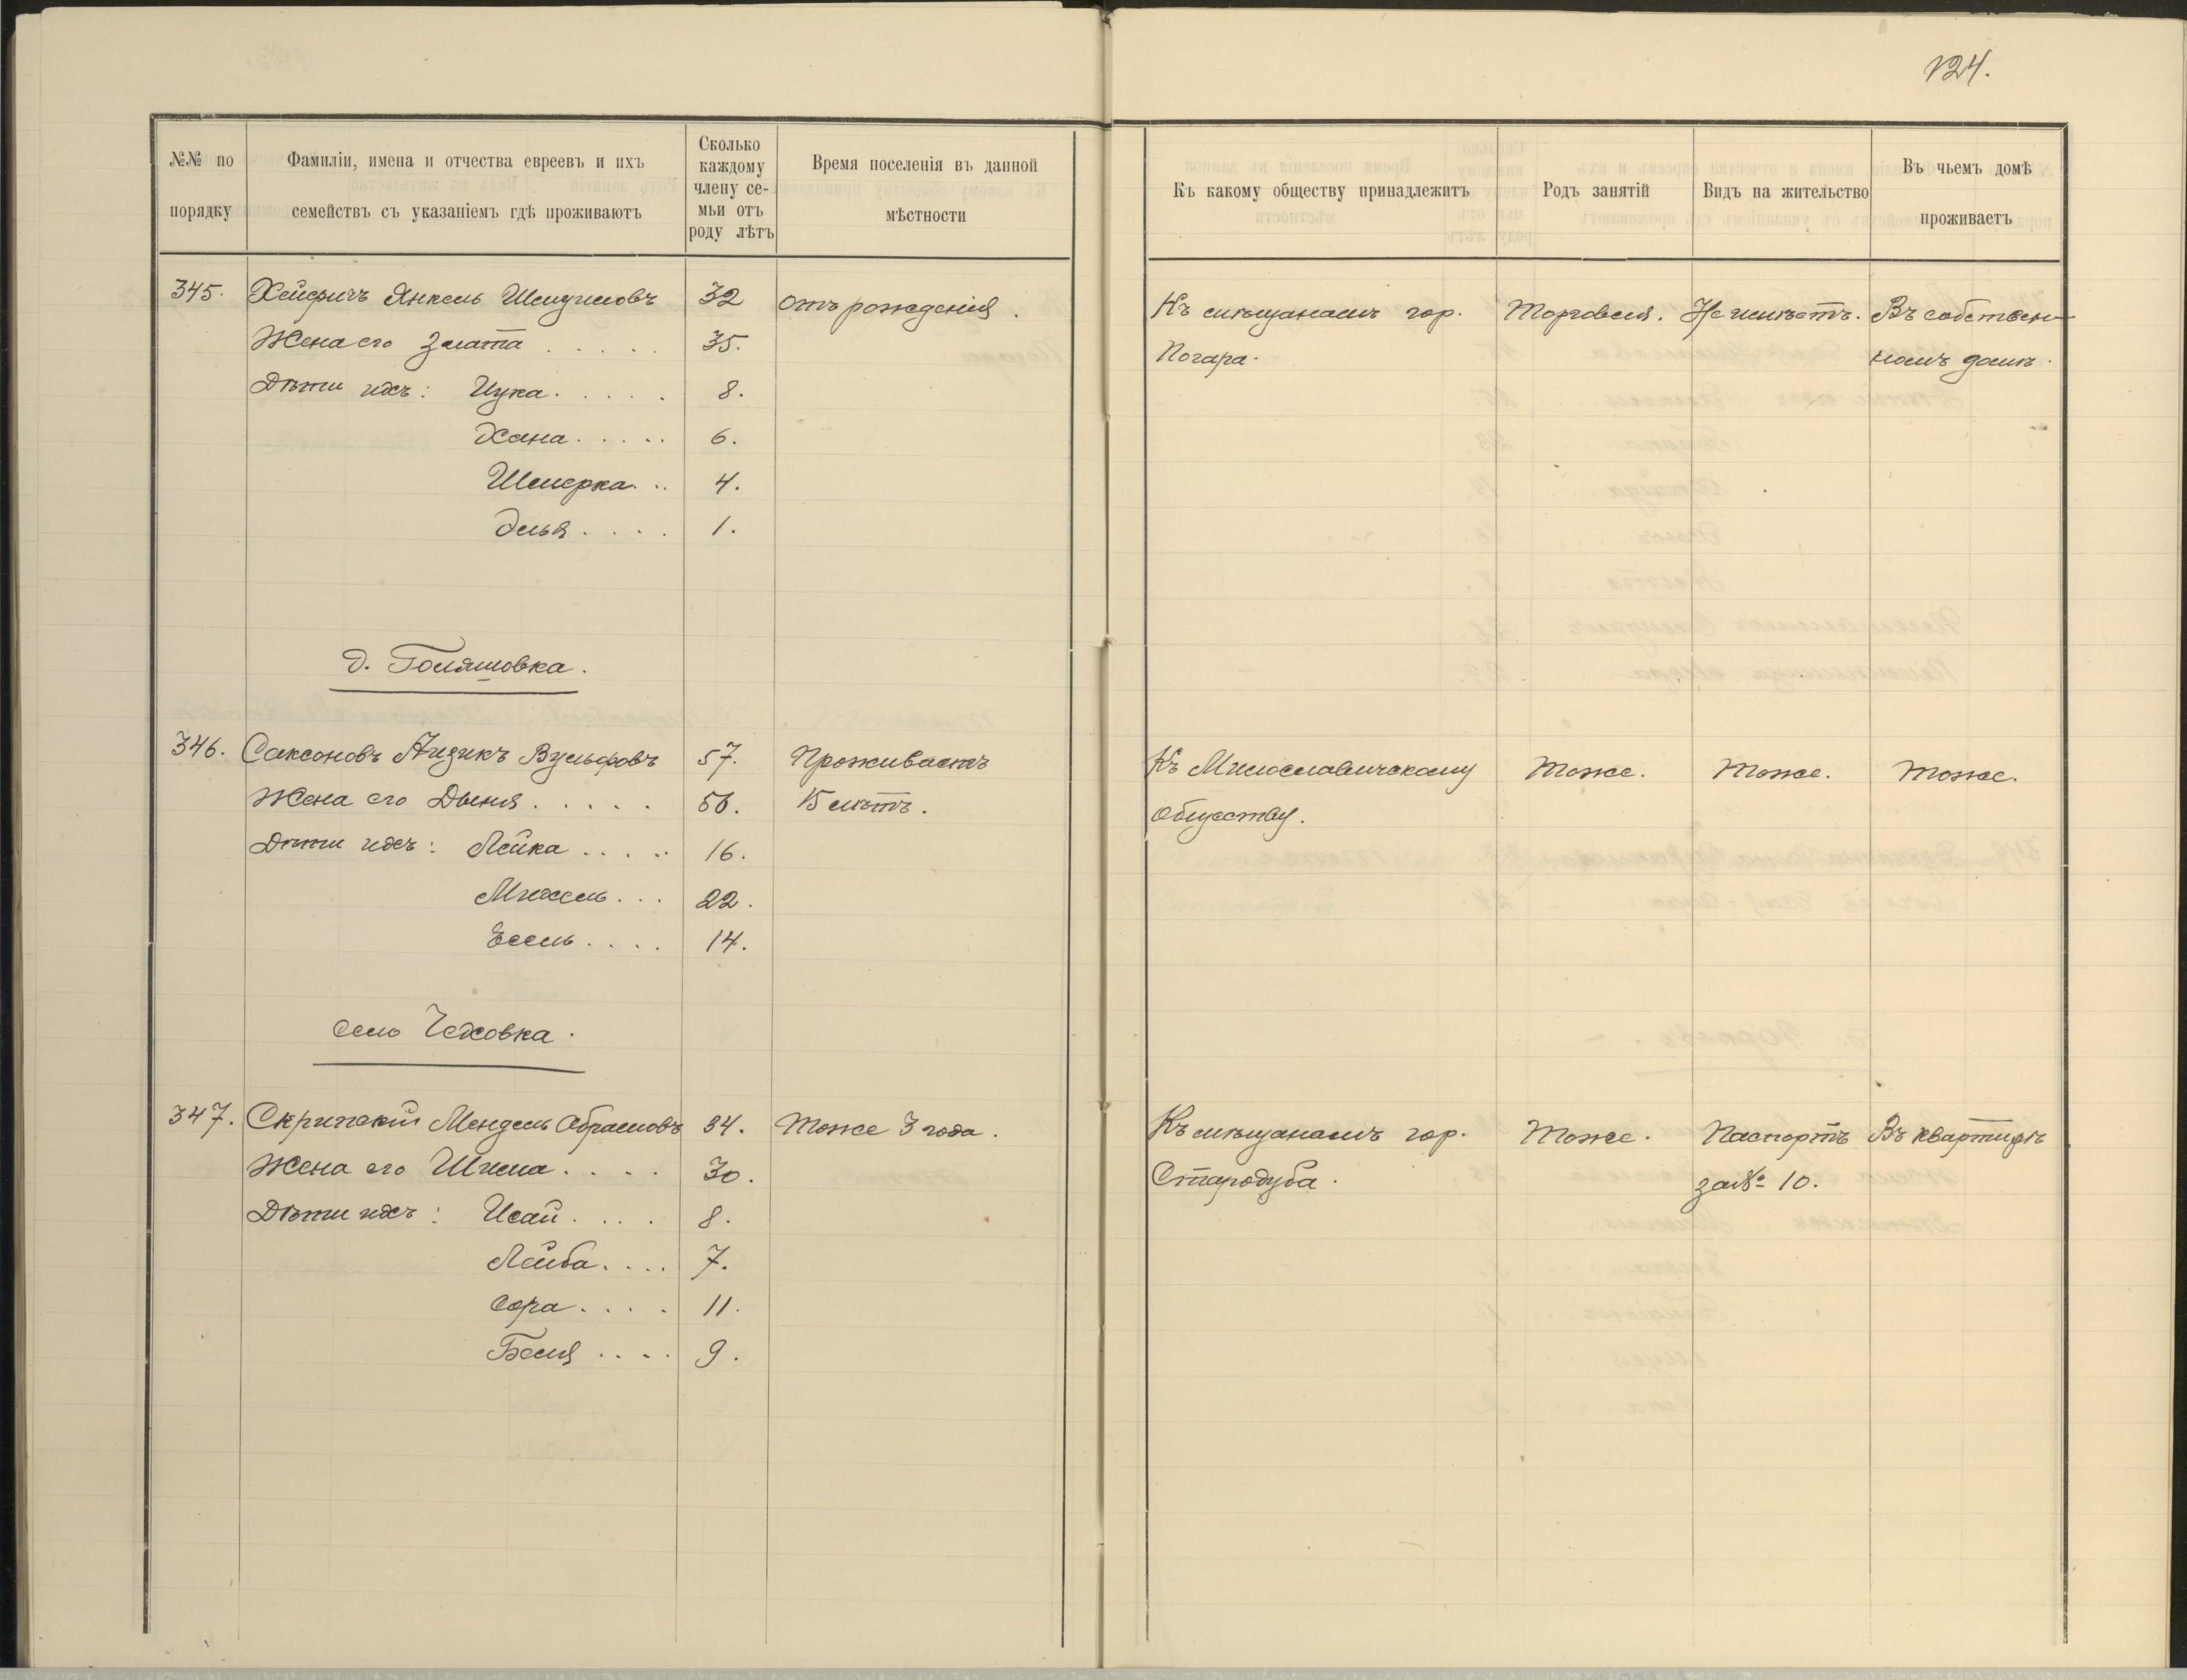 124.
№№ по порядку
Фамиліи, имена и отчества евреевъ и ихъ
семействъ съ указаніемъ гдѣ проживаютъ
Сколько
каждому
члену се-
мьи отъ
роду лѣтъ
Время поселенія въ данной
мѣстности
Къ какому обществу принадлежитъ
Родъ занятій
Видъ на жительство
Въ чьемъ домѣ
проживаетъ
345. Хейфичъ Янкель Шмуиловъ 32 отъ рожденія. Къ мѣщанамъ гор. Торговля. Не имѣетъ. Въ собствен-
Жена его Злата 35. Погара. номъ домѣ.
Дѣти ихъ: Цука 8.
Хана 6.
Шмерка 4.
Элья 1.
д. Голяшовка.
346. Саксоновъ Айзикъ Вульфовъ 57. Проживаетъ Къ Милославичскому Тоже. Тоже. Тоже.
Жена его Двыня 56. 15 лѣтъ. обществу.
Дѣти ихъ: Лейка 16.
Михель 22.
Ессель 14.
Село Чеховка.
347. Мендель Абрамовъ 34. Тоже 3 года. Къ мѣщанамъ гор. Тоже. Паспортъ Въ квартирѣ
Жена его 30. Стародуба. за № 10.
Дѣти ихъ: Исай 8.
Лейба 7.
Сора 11.
Беля 9.